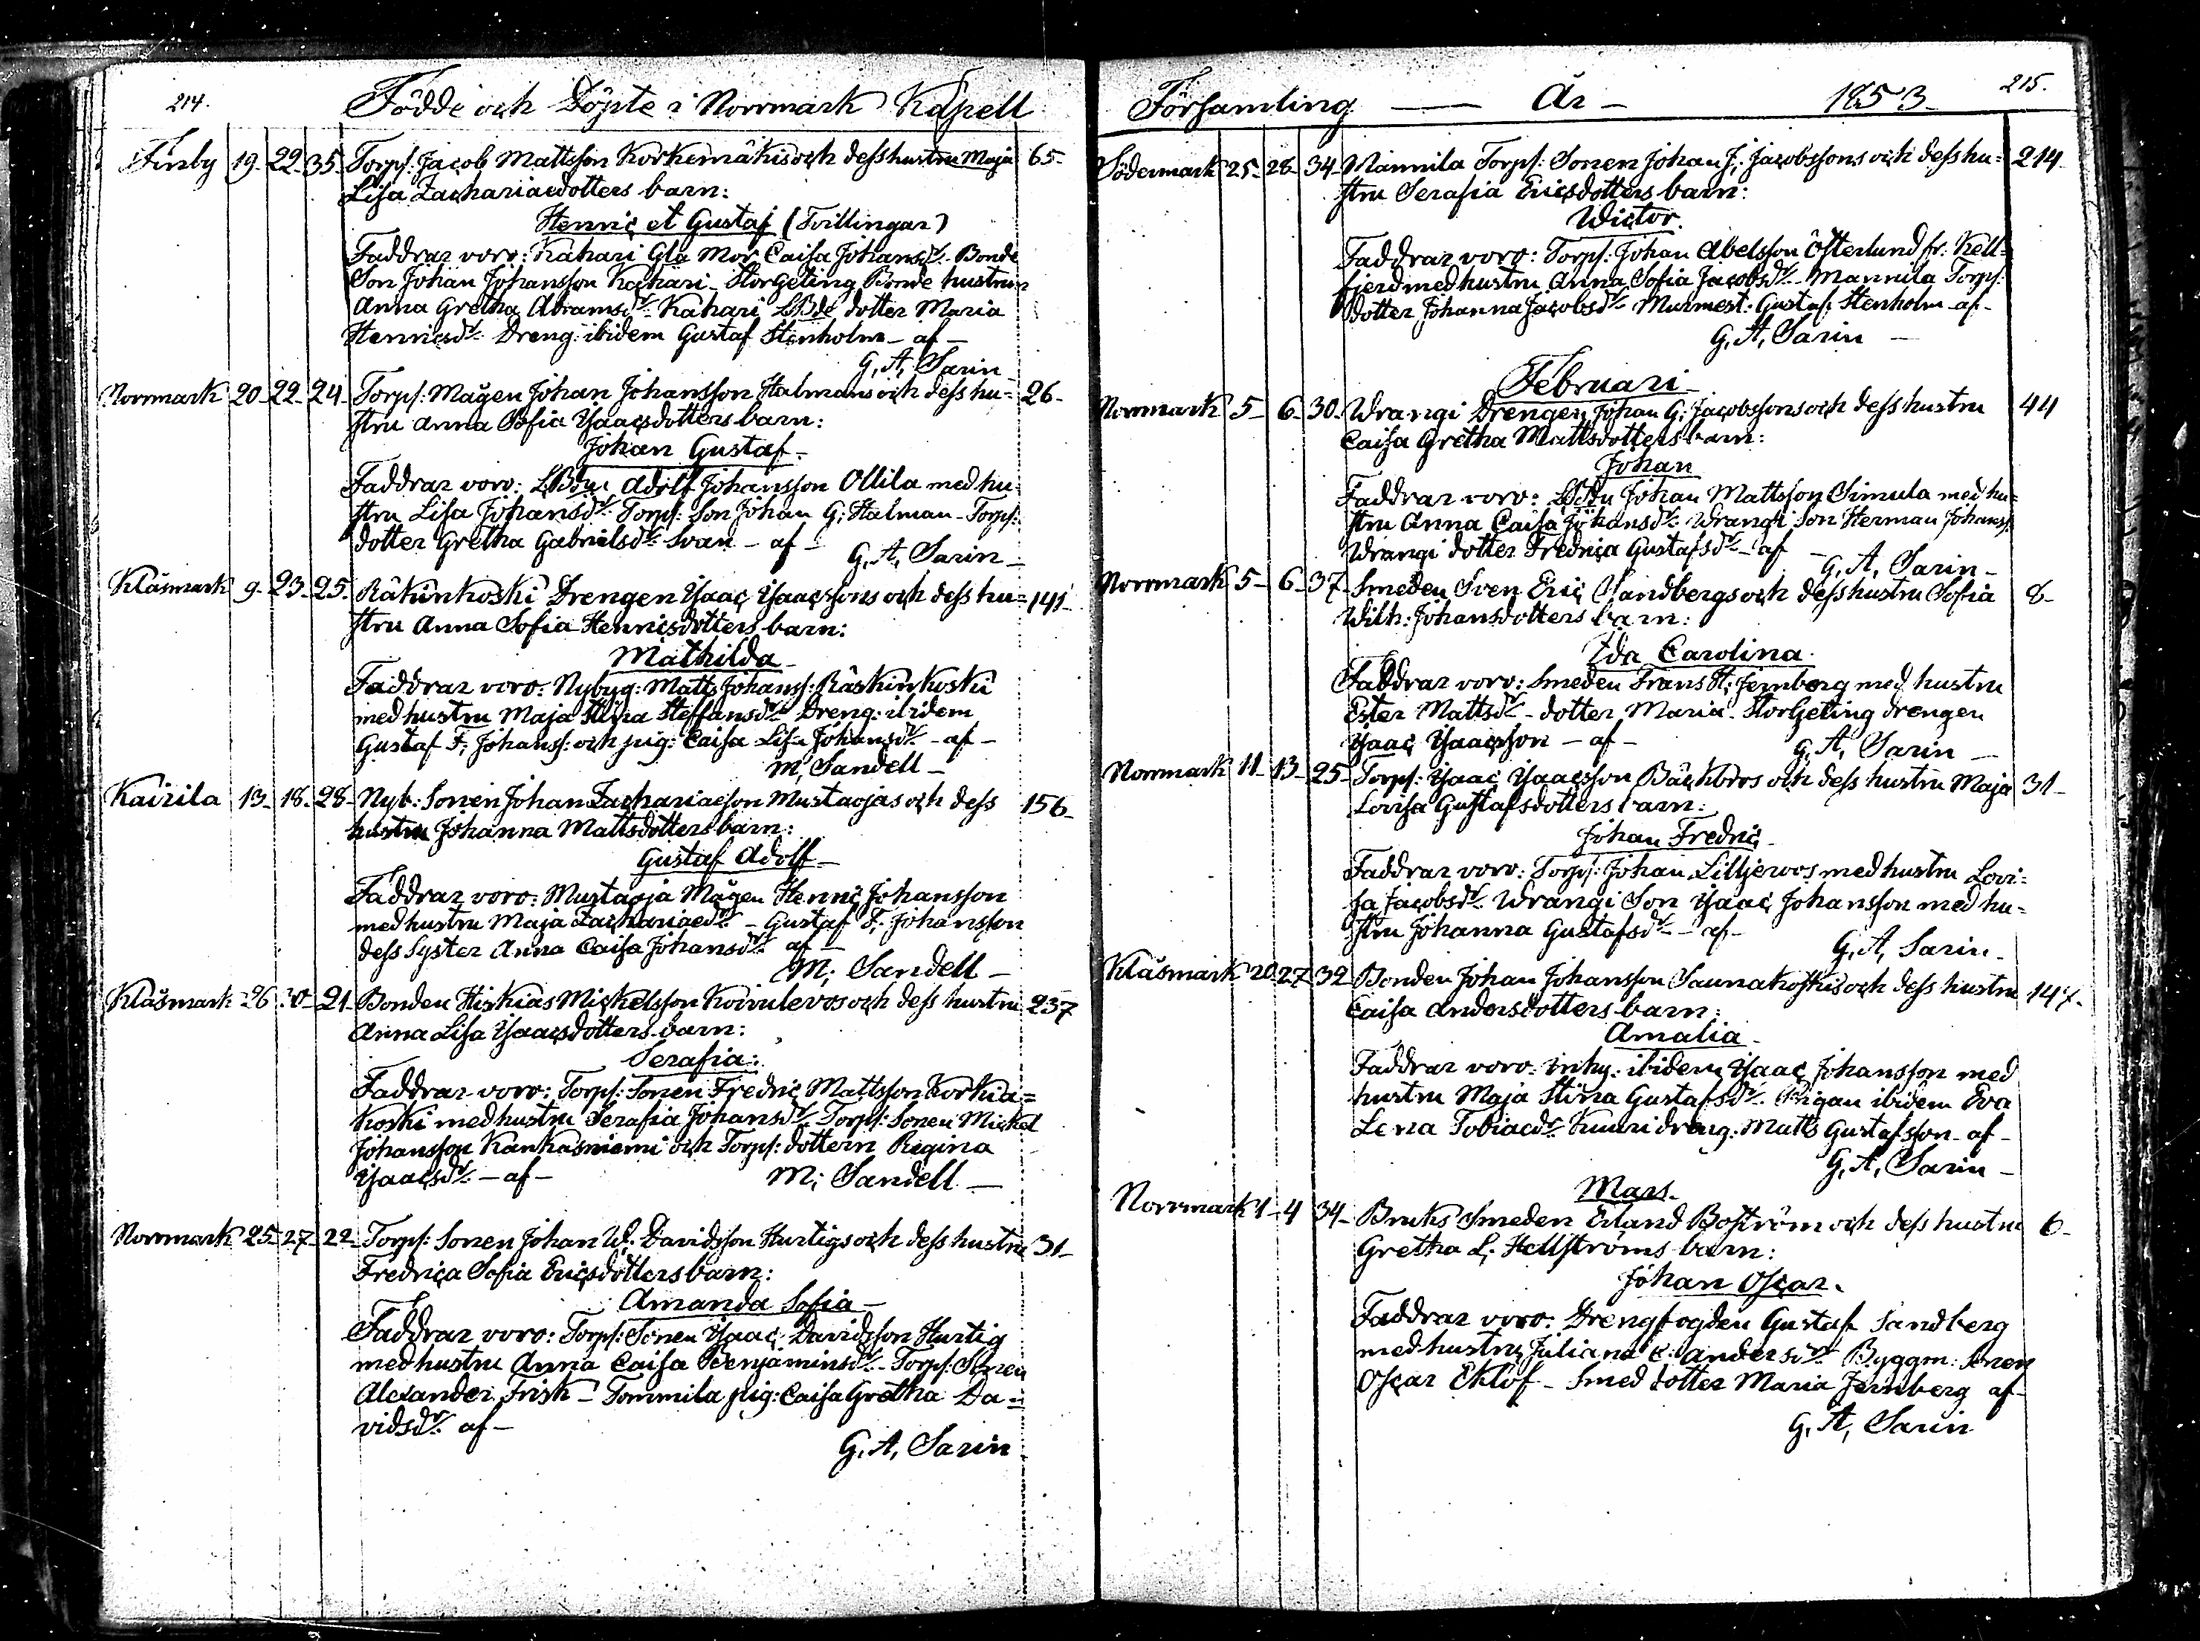 214.
Födde och Döpte i Norrmark Kapell
Finby 19. 22. 35. Torps. Jacob Mattsson Korkemäkis och dess hustru Maja 65-
Lisa Zachariaedotters barn:
Henric et Gustaf (Tvillingar)
Faddrar voro: Kahari Gla Mor Caisa Johansdr. Bonde
Son Johan Johansson Kahari - Storgeting Bonde hustrun
Anna Gretha Abramsdr. Kahari LBde dotter Maria
Henricsdr. Dreng: ibidem Gustaf Stenholm - af -
G. A. Sarin
Norrmark 20. 22. 24. Torps. Mågen Johan Johansson Halmans och dess hu= 26-
stru Anna Sofia Ysaacsdotters barn:
Johan Gustaf-
Faddrar voro: LBdn Adolf Johansson Ollila med hu=
stru Lisa Johansdr. Torps: Son Johan G: Halman - Torps:
dotter Gretha Gabrielsdr. Svan - af -
G. A. Sarin -
Klåsmark 9. 23. 25. Räkinkoski Drengen Ysaac Ysaacssons och dess hu= 141-
stru Anna Sofia Henricsdotters barn:
Mathilda-
Faddrar voro: Nybyg: Matts Johanss: Räskinkoski
med hustru Maja Stina Steffansdr. Dreng: ibidem
Gustaf F. Johanss: och pig: Caisa Lisa Johansdr. - af -
M. Sandell -
Kairila 13. 18. 28. Nyb: Sonen Johan Zachariaeson Mustaojas och dess 156-
hustru Johanna Mattsdotters barn:
Gustaf Adolf -
Faddrar voro: Mustaoja Mågen Henric Johansson
med hustru Maja Zachariaedr. - Gustaf F. Johansson
dess Syster Anna Caisa Johansdr. af -
M. Sandell -
Klåsmark 26. 30. 21. Bonden Hiskias Mickelsson Koivulevos och dess hustru 237
Anna Lisa Ysaacsdotters barn:
Serafia:
Faddrar voro: Torps: Sonen Fredric Mattsson Korkia=
koski med hustru Serafia Johansdr. Torps: Sonen Mickel
Johansson Kankasniemi och Torps: dottern Regina
Ysaacsdr. - af -
M. Sandell -
Norrmark 25. 27. 22. Torps: Sonen Johan W. Davidsson Hurtigs och dess hustru 31-
Fredrica Sofia Ericsdotters barn:
Amanda Sofia -
Faddrar voro: Torps: Sonen Ysaac Davidsson Hurtig
med hustru Anna Caisa Benjaminsdr. - Torps. Sonen
Alexander Frisk - Tommila pig: Caisa Gretha Da=
vidsdr. af -
G. A. Sarin
Församling - År - 1853
215.
Södermark 25. 28. 34. Mannila Torps: Sonen Johan J. Jacobssons och dess hu= 214-
stru Serafia Ericsdotters barn:
Wictor.
Faddrar voro: Torps: Johan Abelsson Österlund fr: Kell=
fjerd med hustru Anna Sofia Jacobsdr. - Mannila Torps:
dotter Johanna Jacobsdr. Murmest: Gustaf Stenholm - af -
G. A. Sarin -
Februari -
Norrmark 5. 6. 30. Wrangi Drengen Johan G: Jacobssons och dess hustru 44
Caisa Gretha Mattsdotters barn:
Johan
Faddrar voro: LBdn Johan Mattsson Simula med hu=
stru Anna Caisa Johansdr. Wrangi Son Herman Johanss.
Wrangi dotter Fredrica Gustafsdr. - af -
G. A. Sarin -
Norrmark 5. 6. 37. Smeden Sven Eric Sandbergs och dess hustru Sofia 8-
Wilh: Johansdotters barn:
Ida Carolina.
Faddrar voro: Smeden Frans H: Jernberg med hustru
Ester Mattsdr. - dotter Maria. Storgeting drengen
Ysaac Ysaacsson - af -
G. A. Sarin -
Norrmark 11. 13. 25. Torps: Ysaac Ysaacsson Bäckbros och dess hustru Maja 31-
Lovisa Gustafsdotters barn:
Johan Fredric -
Faddrar voro: Torps: Johan Lilljeroos med hustru Lovi=
sa Jacobsdr. Wrangi Son Ysaac Johansson med hu=
stru Johanna Gustafsdr. - af -
G. A. Sarin -
Klåsmark 20. 27. 32. Bonden Johan Johansson Saunakoskis och dess hustru 147-
Caisa Andersdotters barn:
Amalia -
Faddrar voro: inhy: ibidem Ysaac Johansson med
hustru Maja Stina Gustafsdr. Pigan ibidem Eva
Lena Tobiaedr. Kuuri dreng: Matts Gustafsson - af -
G. A. Sarin -
Mars -
Norrmark 1. 4. 34. Bruks Smeden Erland Boström och dess hustru 6-
Gretha L. Hellströms barn:
Johan Oscar.
Faddrar voro: Drengfogden Gustaf Sandberg
med hustru Juliana C. Andersdr. Byggm: Sonen
Oscar Eklöf - Smed dotter Maria Jernberg af -
G. A. Sarin